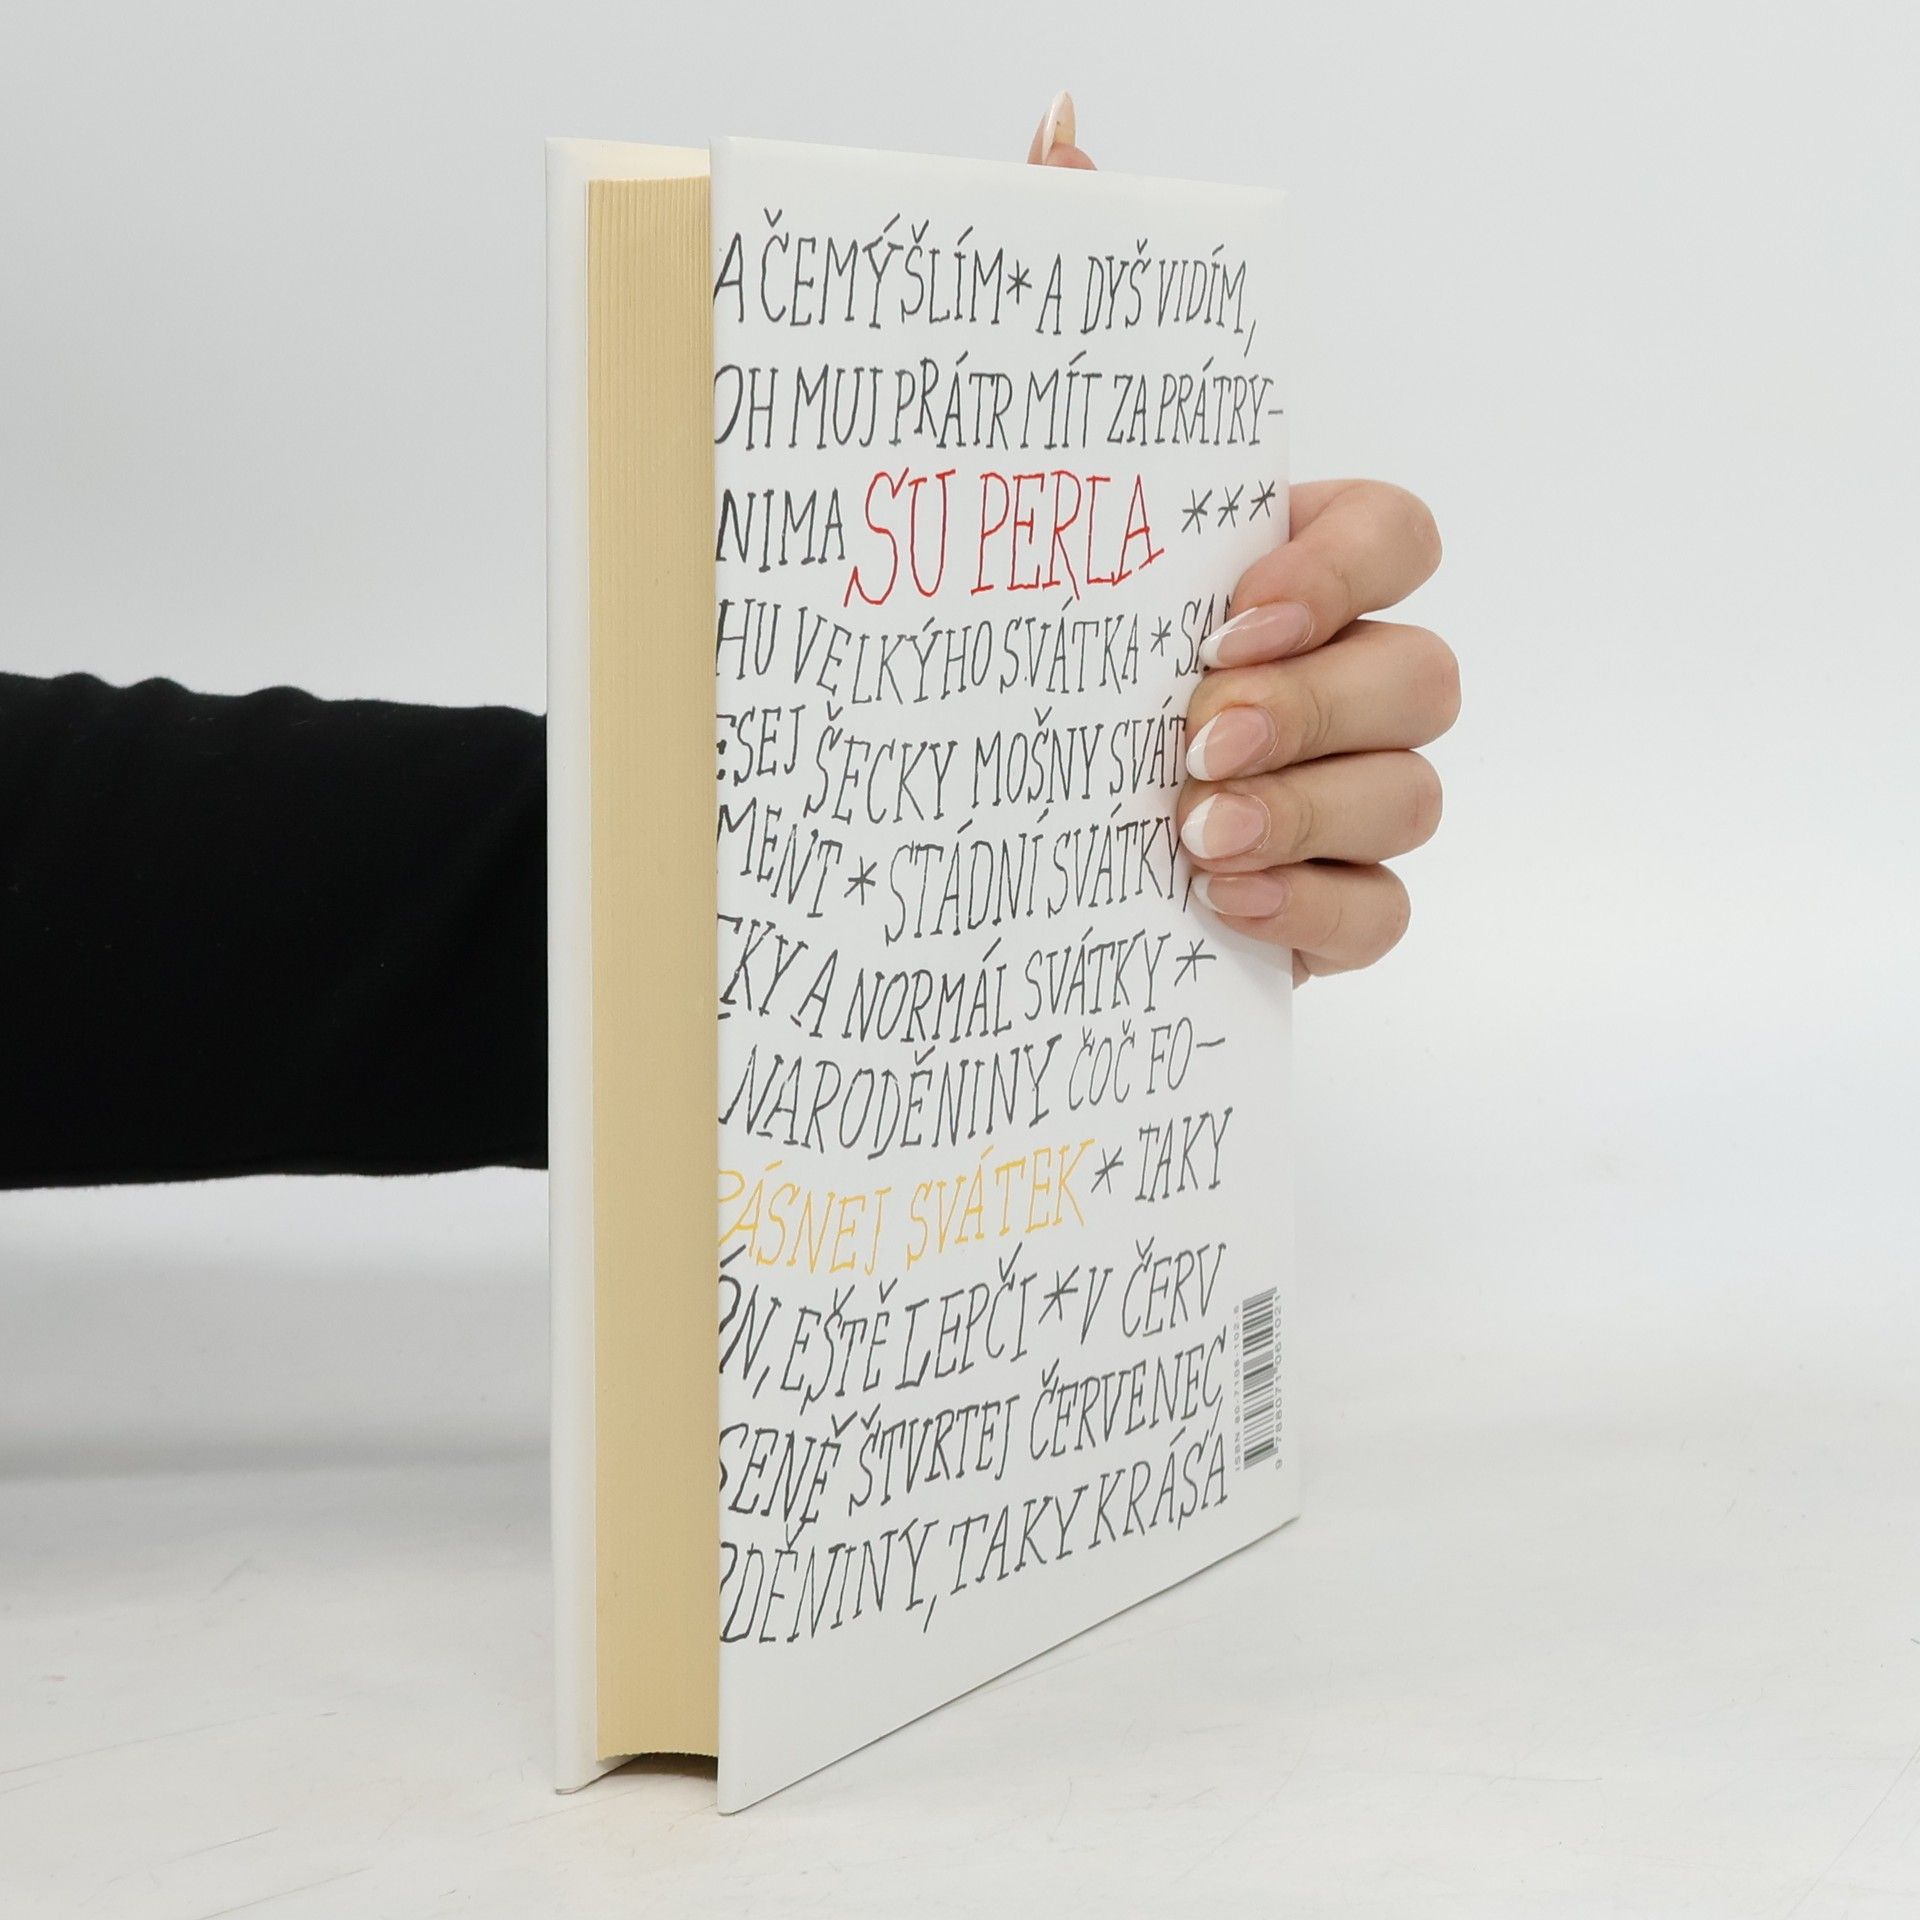 A ČEMÝŠLÍM * A DYŠ VIDÍM,
OH MUJ PRÁTR MÍT ZA PRÁTRY-
NIMA SU PERLA ***
HU VELKÝHO SVÁTKA *
ESEJ ŠECKY MOŠNY SVÁT
MENT * STÁDNÍ SVÁTKY,
KY A NORMÁL SVÁTKY *
NARODĚNINY ČOČ FO-
PÁSNEJ SVÁTEK * TAKY
N, EŠTĚ LEPČI * V ČERV
SENĚ ŠTVRTEJ ČERVENEC
DĚNINY, TAKY KRÁSÁ
ISBN 80-7106-102-8
9 788071 061021